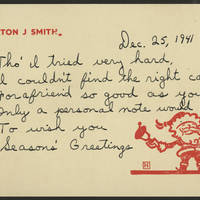 TON J SMITH
Dec. 25, 1941
Tho' I tried very hard,
I couldn't find the right ca
For a friend so good as you
Only a personal note would
To wish you
Seasons' Greetings